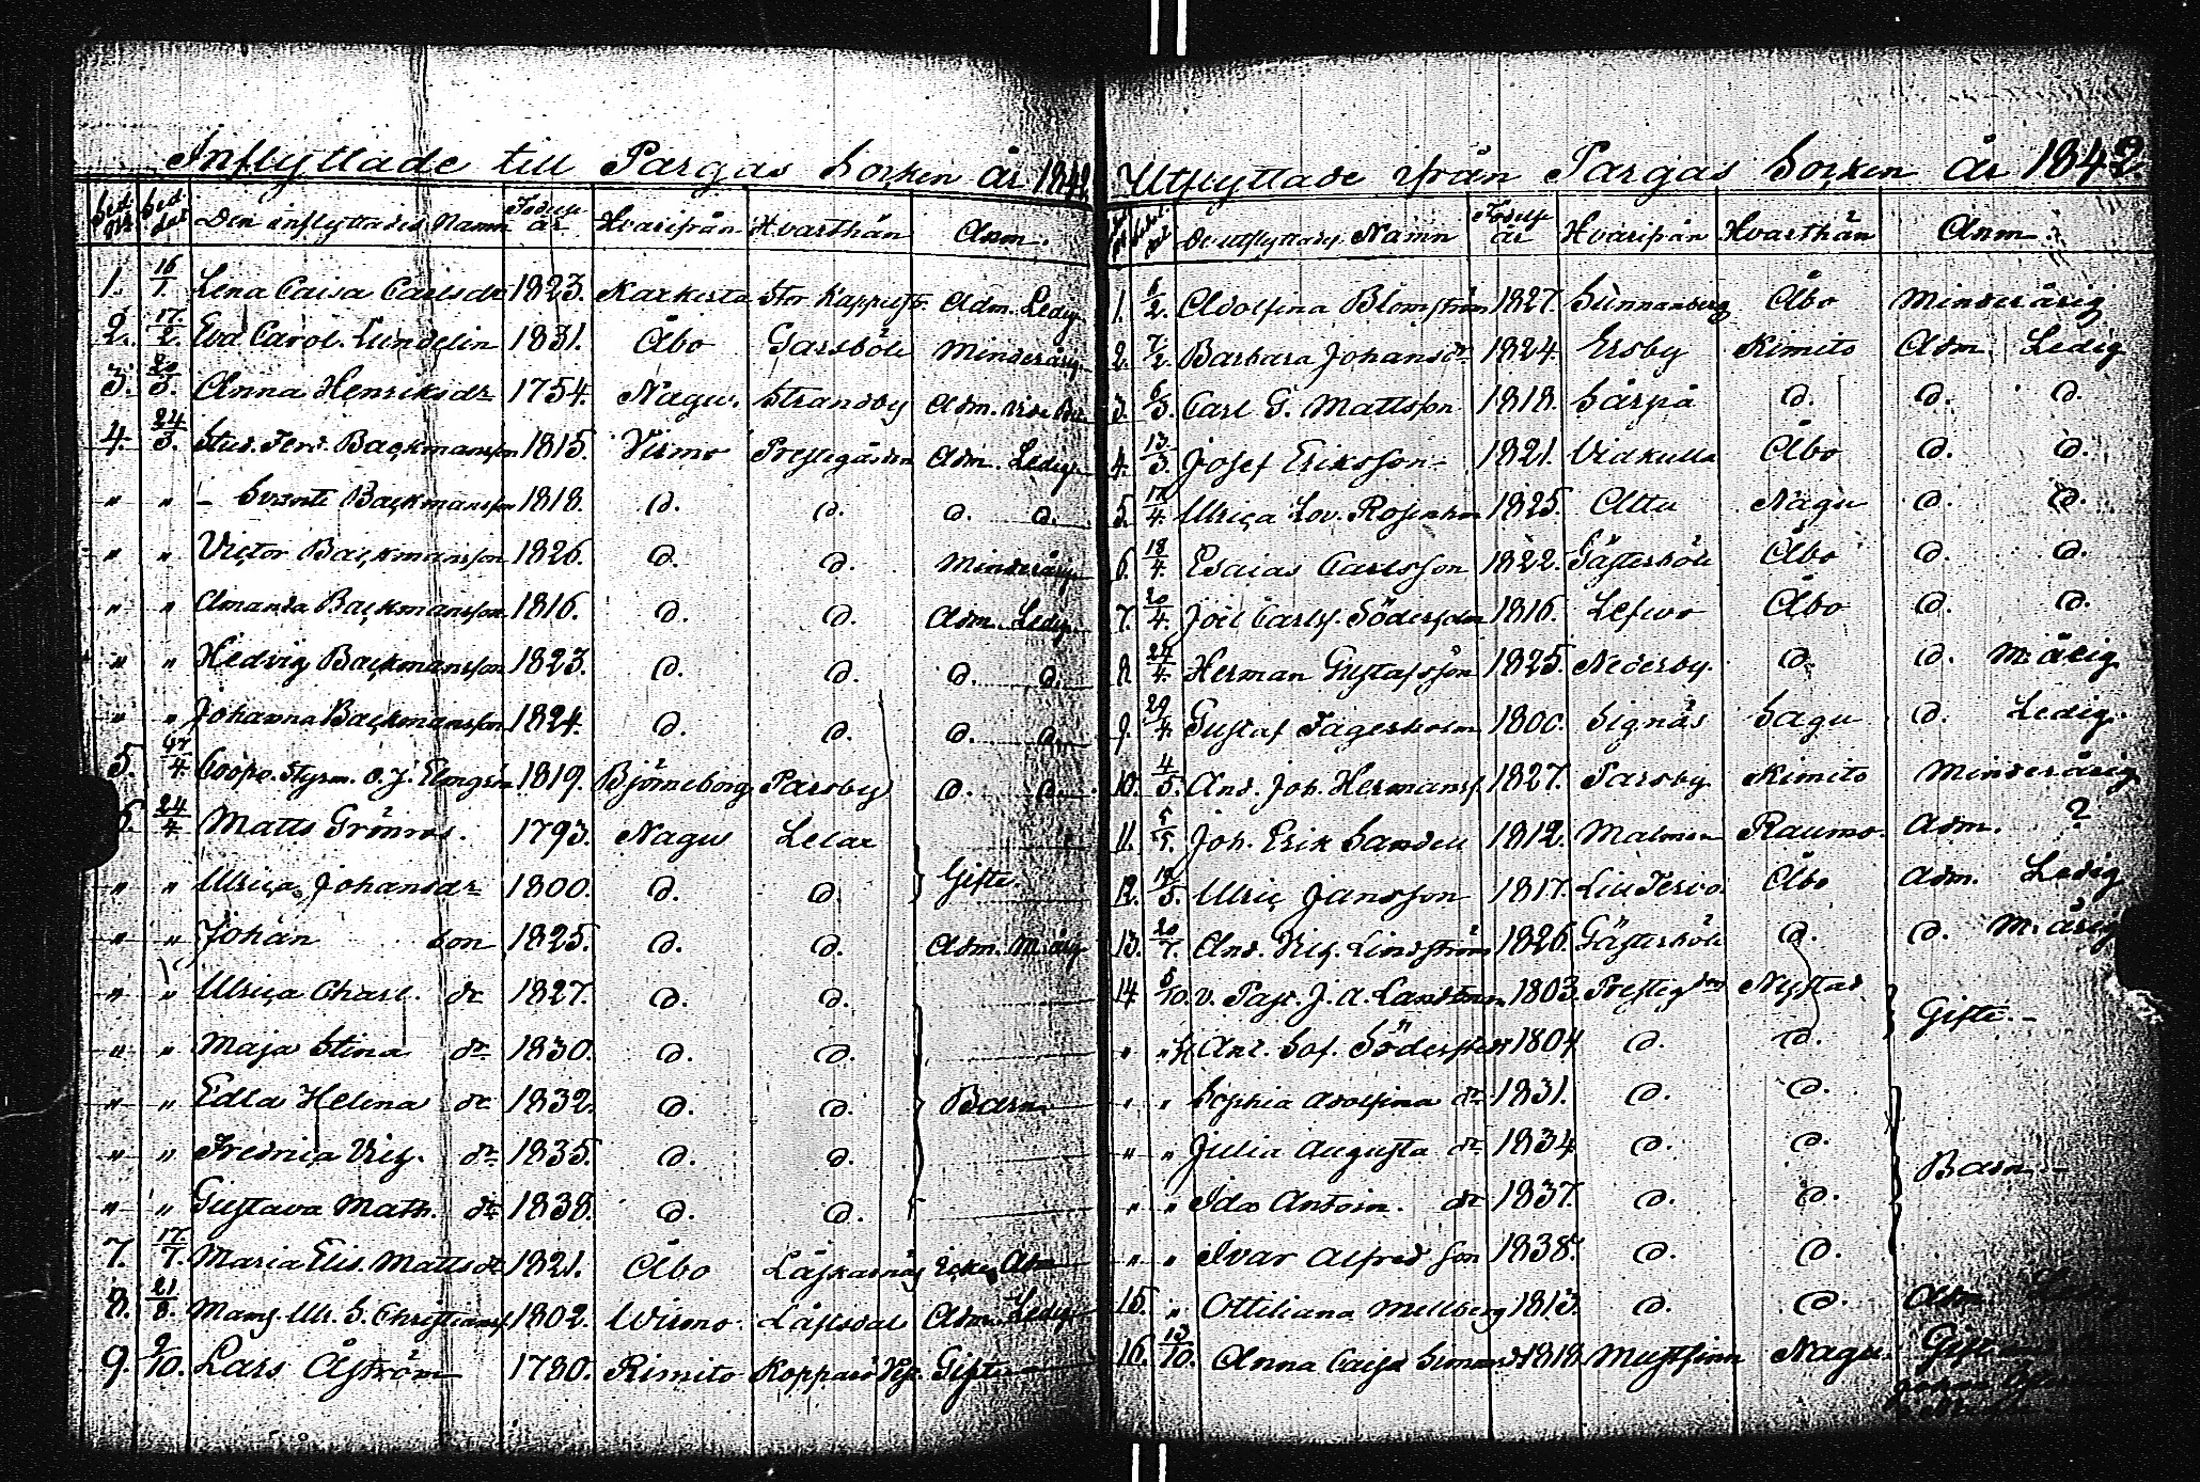 Inflyttade till Pargas Socken år 1842
Den inflyttades Namn Födelse år Hvarifrån Hvarthän Anm.
1. 16/1. Lena Caisa Carlsdr 1823. Karkerta Stor Adm. Ledig
2. 17/2. Eva Carol. Lundelin 1831. Åbo Garsböle Minderårig
3. 20/3. Anna Henriksdr 1754. Nagu. Strandby Adm.
4. 24/3. Stud. Ferd. Backmansson 1815. Virmo Prestegården Adm. Ledig
" " - Svante Backmansson 1818. d. d. d. d.
" " Victor Backmansson 1826. d. d. Minderårig
" " Amanda Backmansson 1816. d. d. Adm. Ledig
" " Hedvig Backmansson 1823. d. d. d. d.
" " Johanna Backmansson 1824. d. d. d. d.
5. 4. Coopv. Styrm. O. J. Elmgrén 1819. Björneborg Parsby d. d.
6. 24/4 Matts Grönros. 1793. Nagu Lelax
" " Ulrica Johansdr 1800. d. d. Gifte.
" " Johan son 1825. d. d. Adm. M. årig
" " Ulrica Charl. dr 1827. d. d.
" " Maja Stina dr 1830. d. d.
" " Edla Helena dr 1832. d. d. Barn
" " Fredrica Vilh. dr 1835. d. d.
" " Gustava Math. dr 1838. d. d.
7. 17/7. Maria Elis. Mattsdr 1821. Åbo Läskarnäs Adm
8. 21/8. Mamß. Ulr. S. Christiansß 1802. Wirmo. Läfsdal Adm. Ledig
9. 9/10. Lars Åström 1780. Kimito Kopparö Gifte

Utflyttade ifrån Pargas Socken år 1842
De utflyttades Namn Födelse år Hvarifrån Hvarthän Anm.
1. 2. Adolfina Blomström 1827. Sunnanberg Åbo Minderårig
2. 7/2. Barbara Johansdr 1824. Ersby Kimito Adm. Ledig
3. 6/3. Carl G. Mattsson 1818. Särpä d. d. d.
4. 13/3. Josef Eriksson 1821. Vidkulla Åbo d. d.
5. 17/4. Ulrica Lov. 1825. Attu Nagu d. d.
6. 18/4. Esaias Carlsson 1822. Gästerböle Åbo d. d.
7. 20/4. Joel Carlss. Söderholm 1816. Lefwo Åbo d. d.
8. 24/4. Herman Gustafsson 1825. Nederby. d. d. M. årig
9. 29/4. Gustaf Fagerholm 1800. Signäs Sagu d. Ledig.
10. 4/5. And. Joh. Hermanss. 1827. Parsby Kimito Minderårig
11. 5/5. Joh. Erik Sandell 1812. Malmen Raumo. Adm. ?
12. 5. Ulric Jansson 1817. Åbo Adm. Ledig
13. 20/7. And. Vilh. Lindström 1826. Gästerböle d. d. M. årig
14 5/10. v. Past. J. A. 1803. Presteg den Nystad
" " Sof. 1804 d. d. Gifte.
" " Sophia Adolfina dr 1831. d. d.
" " Julia Augusta dr 1834 d. d.
" " Ida Antoin. dr 1837. d. d. Barn
" " Ivar Alfred son 1838. d. d.
15. " Ottiliana Mellberg 1813. d. d. Adm
16. 13/10. Anna Caisa Simansdr 1818. Mustfinn Nagu. Gift